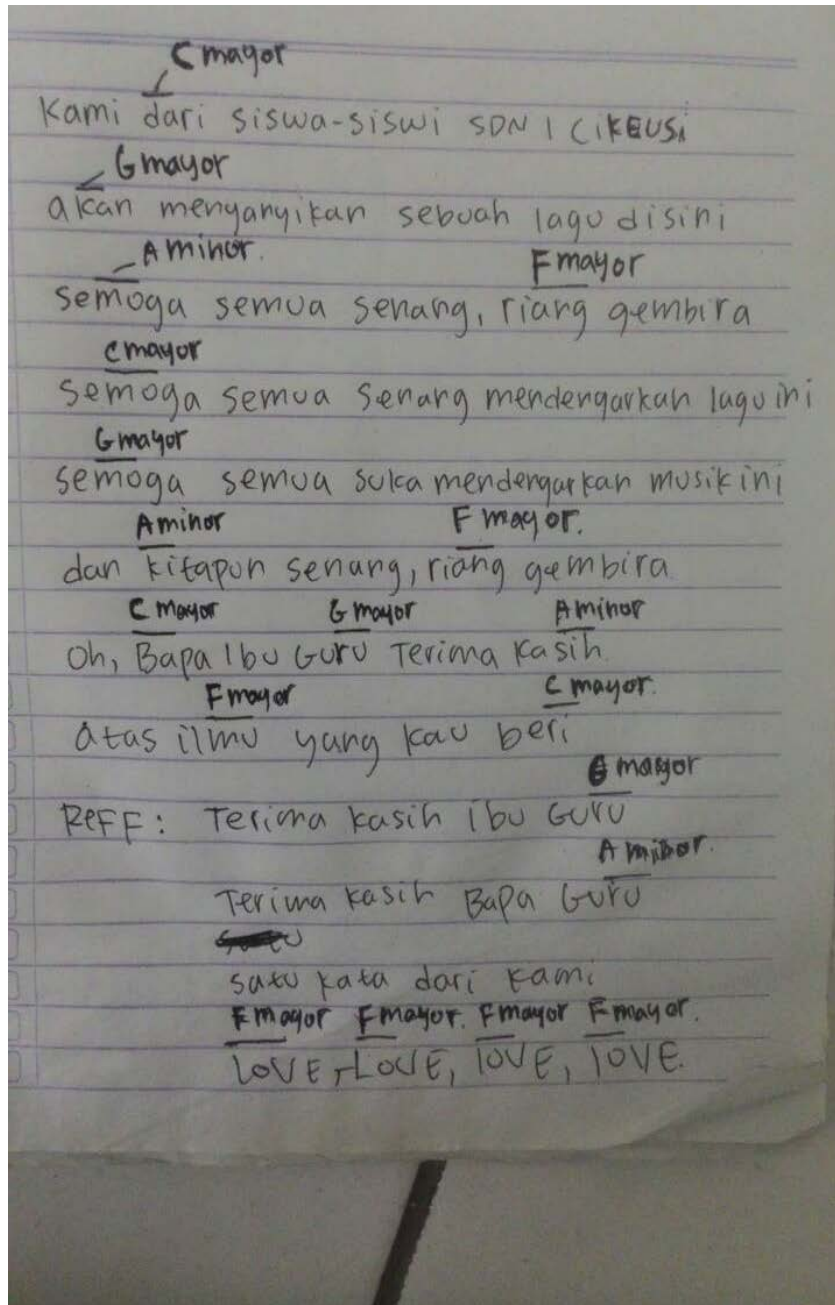 C mayor
Kami dari siswa-siswi SDN 1 CIKEUSI
G mayor
akan menyanyikan sebuah lagu disini
A minor. F mayor
semoga semua senang, riang gembira
C mayor
semoga semua senang mendengarkan lagu ini
G mayor
semoga semua suka mendengarkan musik ini
A minor F mayor.
dan kitapun senang, riang gembira.
C mayor G mayor A minor
Oh, Bapa Ibu Guru Terima kasih.
F mayor C mayor.
atas ilmu yang kau beri
G mayor
REFF : Terima kasih ibu Guru
A minor.
Terima kasih Bapa Guru
satu kata dari kami
F mayor F mayor. F mayor F mayor.
LOVE, LOVE, lOVE, lOVE.